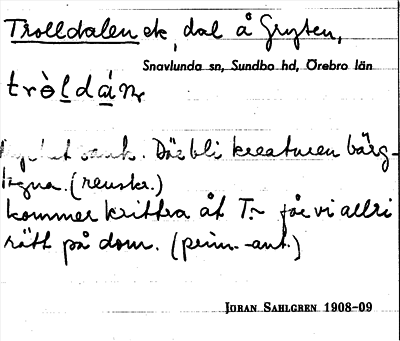 Trolldalen ek, dal å Gryten,
Snavlunda sn, Sundbo hd, Örebro län
trò̀ldán,
Mycket sank. Där bli kreaturen bärg-
tagna. (renskr.)
kommer krittra åt T:~ får vi allri
rätt på dom. (prim.-ant.)
JÖRAN SAHLGREN 1908-09